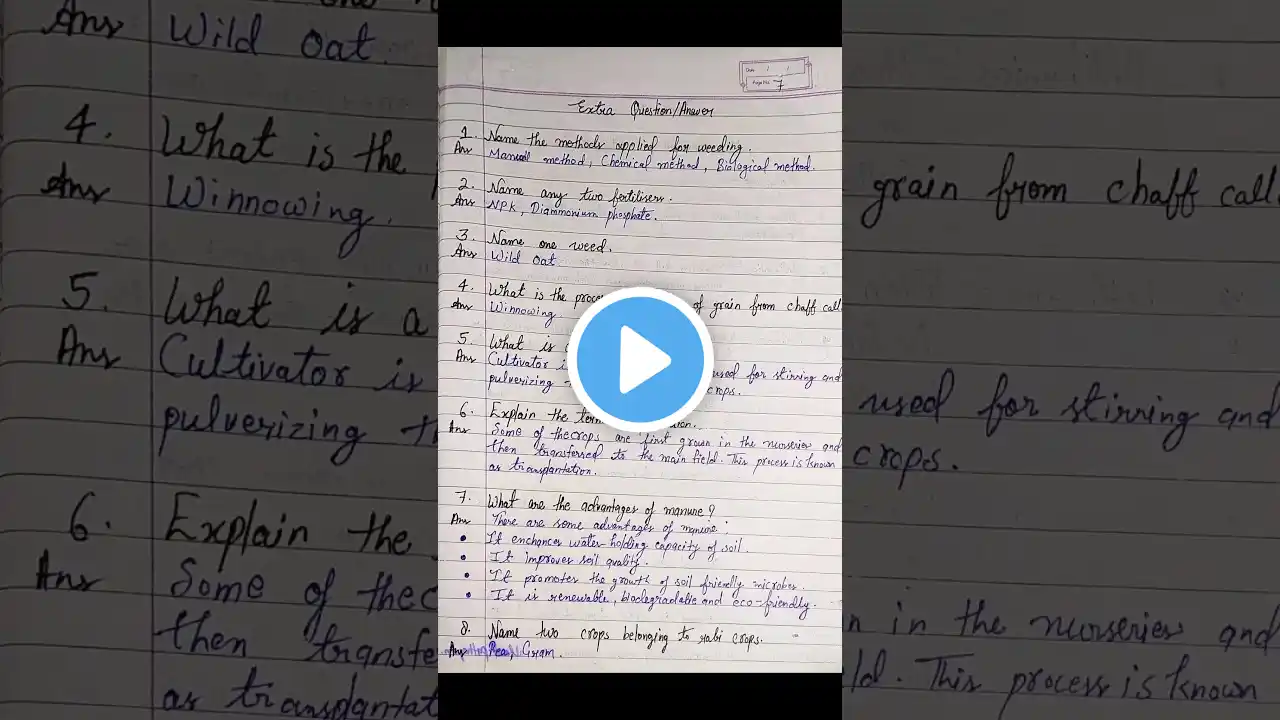 Ans Wild oat.
4. What is the
Ans Winnowing.
5. What is a
Ans Cultivator is
pulverizing
6. Explain the
Ans Some of the
then
as
Date / /
Page No. 7
Extra Question/Answer
1. Name the methods applied for weeding.
Ans Manual method, Chemical method, Biological method.
2. Name any two fertilisers.
Ans NPK, Diammonium phosphate.
3. Name one weed.
Ans Wild oat
4. What is the of grain from chaff
Ans Winnowing
5. What is
Ans Cultivator used for stirring and
pulverizing crops.
6. Explain the
Ans Some of the crops are first grown in the nurseries and
then transferred to the main field. This process is known
as transplantation.
7. What are the advantages of manure?
Ans There are some advantages of manure:
• It enchances water-holding capacity of soil.
• It improves soil quality.
• It promotes the growth of soil friendly microbes.
• It is renewable, biodegradable and eco-friendly.
8. Name two crops belonging to rabi crops.
Ans Pea, Gram.
grain from chaff
used for stirring and
crops.
in the nurseries and
This process is known